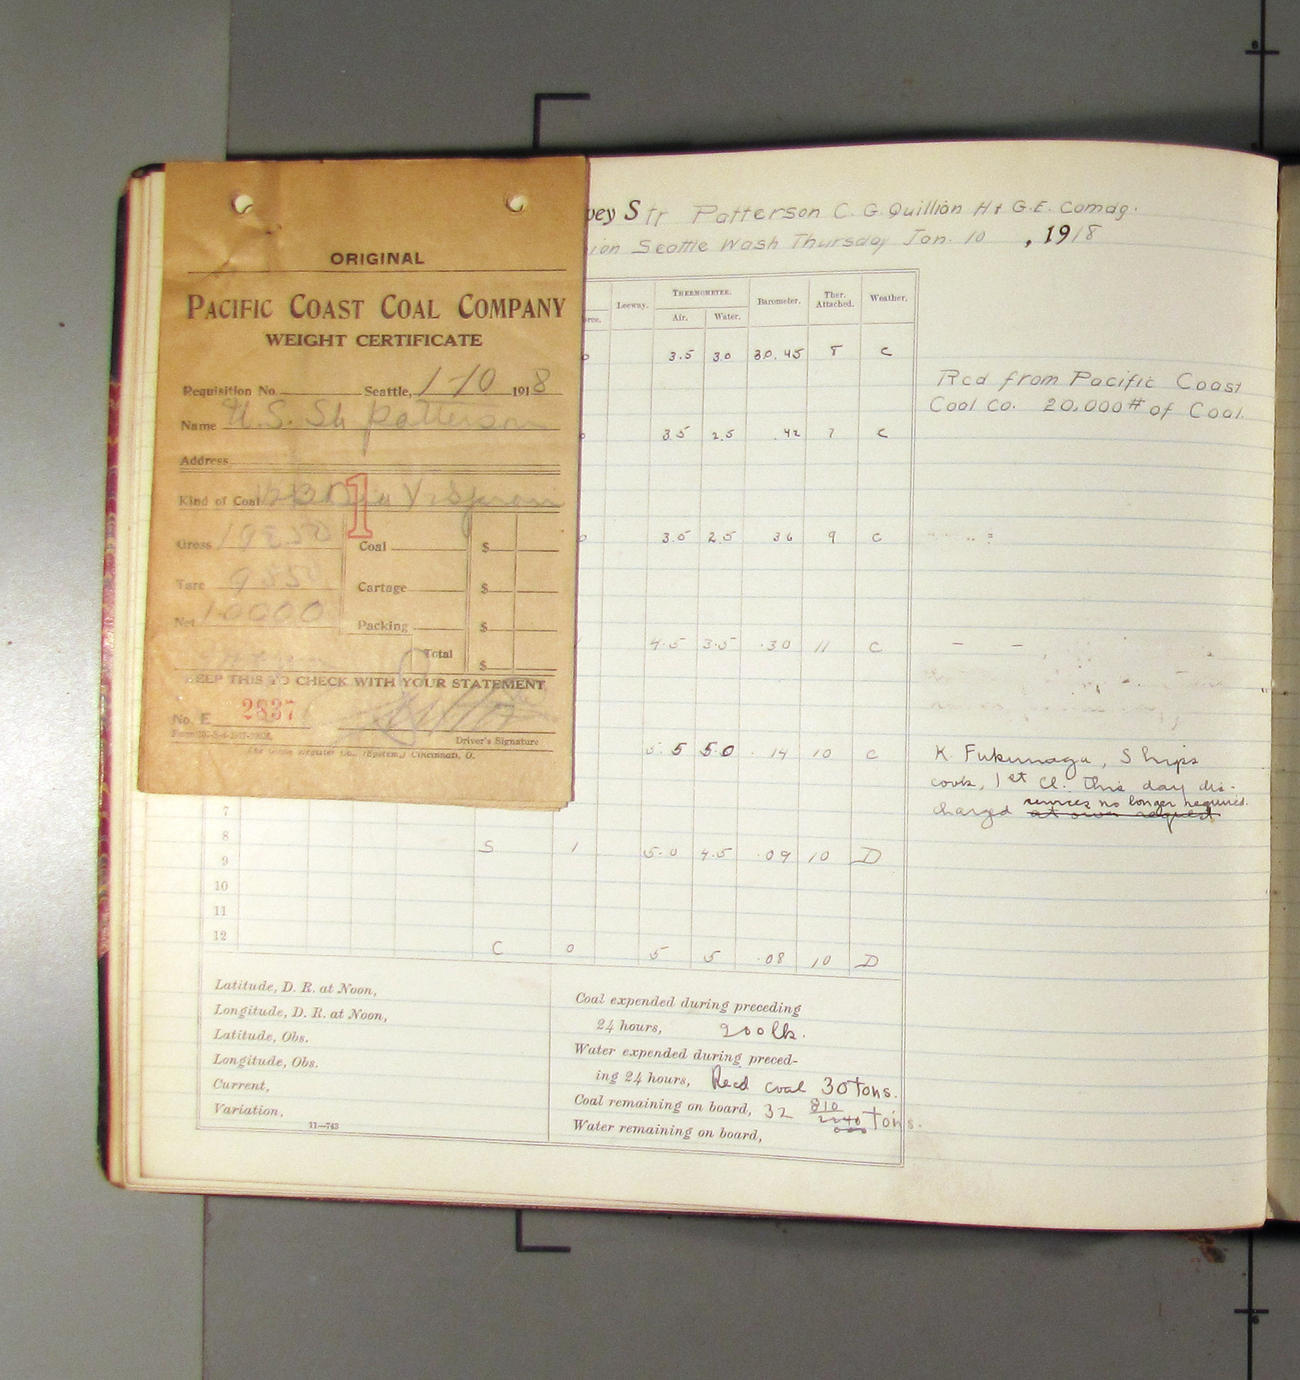 ORIGINAL
PACIFIC COAST COAL COMPANY
WEIGHT CERTIFICATE
Requisition No. Seattle, 1-10 1918
Name U.S. Str Patterson
Address
Kind of Coal
1
Gross Coal $
Tare 9850 Cartage $
Net 10000 Packing $
Total $
KEEP THIS TO CHECK WITH YOUR STATEMENT
No. E 2837
Driver's Signature
Cincinnati, O.
vey Str Patterson C. G. Quillian H & G.E. Comdg.
ion Seattle Wash Thursday Jan. 10 , 1918
Leeway. THERMOMETER. Barometer. Ther. Attached. Weather.
Air. Water.
3.5 3.0 30.45 5 C
Rcd from Pacific Coast
Coal Co. 20,000# of Coal.
3.5 2.5 .42 7 C
3.5 2.5 36 9 C
4.5 3.5 .30 11 C
5.5 5.0 .14 10 C
K. Fukunaga, Ships
cook, 1st Cl. this day dis-
services no longer required.
charged at own request
7
8
S 1 5.0 4.5 .09 10 D
9
10
11
12
C 0 5 5 .08 10 D
Latitude, D. R. at Noon,
Longitude, D. R. at Noon,
Latitude, Obs.
Longitude, Obs.
Current,
Variation,
11—743
Coal expended during preceding
24 hours, 900 lb.
Water expended during preced-
ing 24 hours, Recd coal 30 tons.
Coal remaining on board, 32 810/2240 tons.
Water remaining on board,